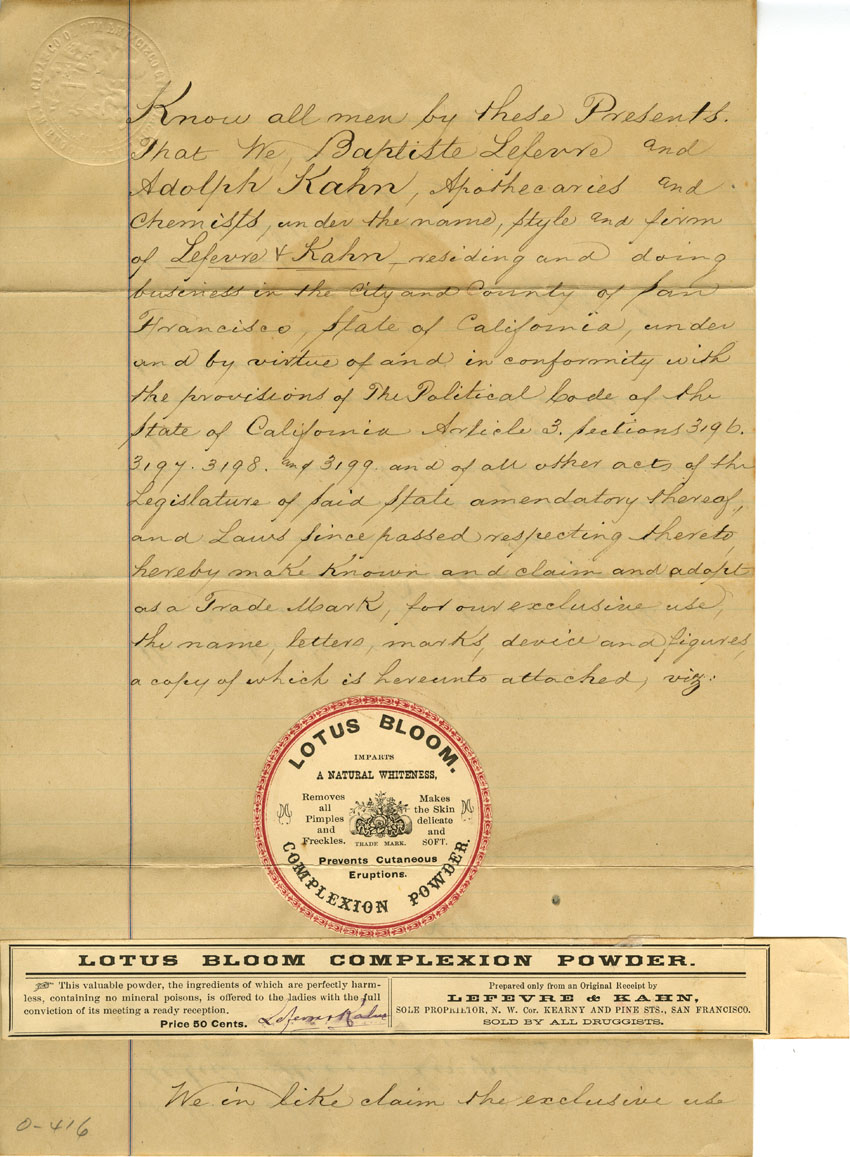 Know all men by these Presents.
That We, Baptiste Lefevre and
Adolph Kahn, Apothecaries and
Chemists, under the name, style and firm
of Lefevre & Kahn, residing and doing
business in the City and County of San
Francisco, State of California, under
and by virtue of and in conformity with
the provisions of The Political Code of the
State of California Article 3. Sections 3196.
3197. 3198. and 3199. and of all other acts of the
Legislature of said State amendatory thereof,
and Laws since passed respecting thereto,
hereby make known and claim and adopt
as a Trade Mark, for our exclusive use,
the name, letters, marks, device and figures,
a copy of which is hereunto attached, viz:
LOTUS BLOOM.
IMPARTS
A NATURAL WHITENESS,
Removes
all
Pimples
and
Freckles.
TRADE MARK.
Makes
the Skin
delicate
and
SOFT.
Prevents Cutaneous
Eruptions.
COMPLEXION POWDER.
LOTUS BLOOM COMPLEXION POWDER.
This valuable powder, the ingredients of which are perfectly harm-
less, containing no mineral poisons, is offered to the ladies with the full
conviction of its meeting a ready reception.
Price 50 Cents. Lefevre & Kahn
Prepared only from an Original Receipt by
LEFEVRE & KAHN,
SOLE PROPRIETOR, N. W. Cor. KEARNY AND PINE STS., SAN FRANCISCO.
SOLD BY ALL DRUGGISTS.
We in like claim the exclusive use
O-416